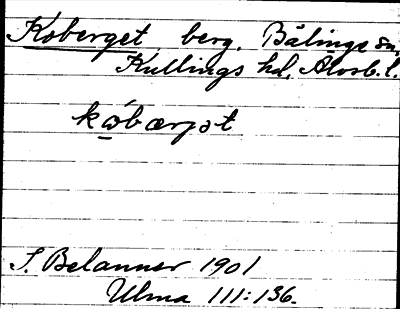 Koberget, berg. Bälinge sn,
Kullings hd, Älvsb. l.
kóbærjət
S. Belanner 1901
Ulma 111:136.